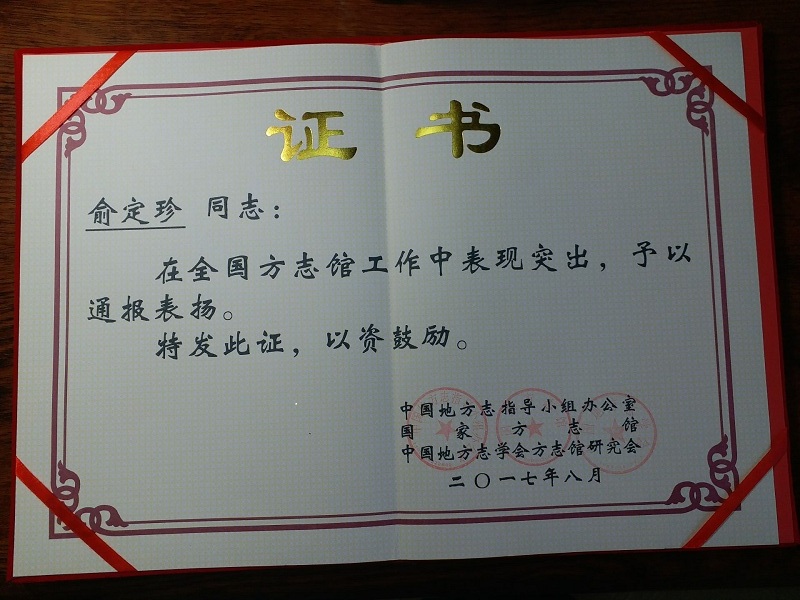 证书
俞定珍 同志：
在全国方志馆工作中表现突出，予以
通报表扬。
特发此证，以资鼓励。
中国地方志指导小组办公室
国家方志馆
中国地方志学会方志馆研究会
二〇一七年八月